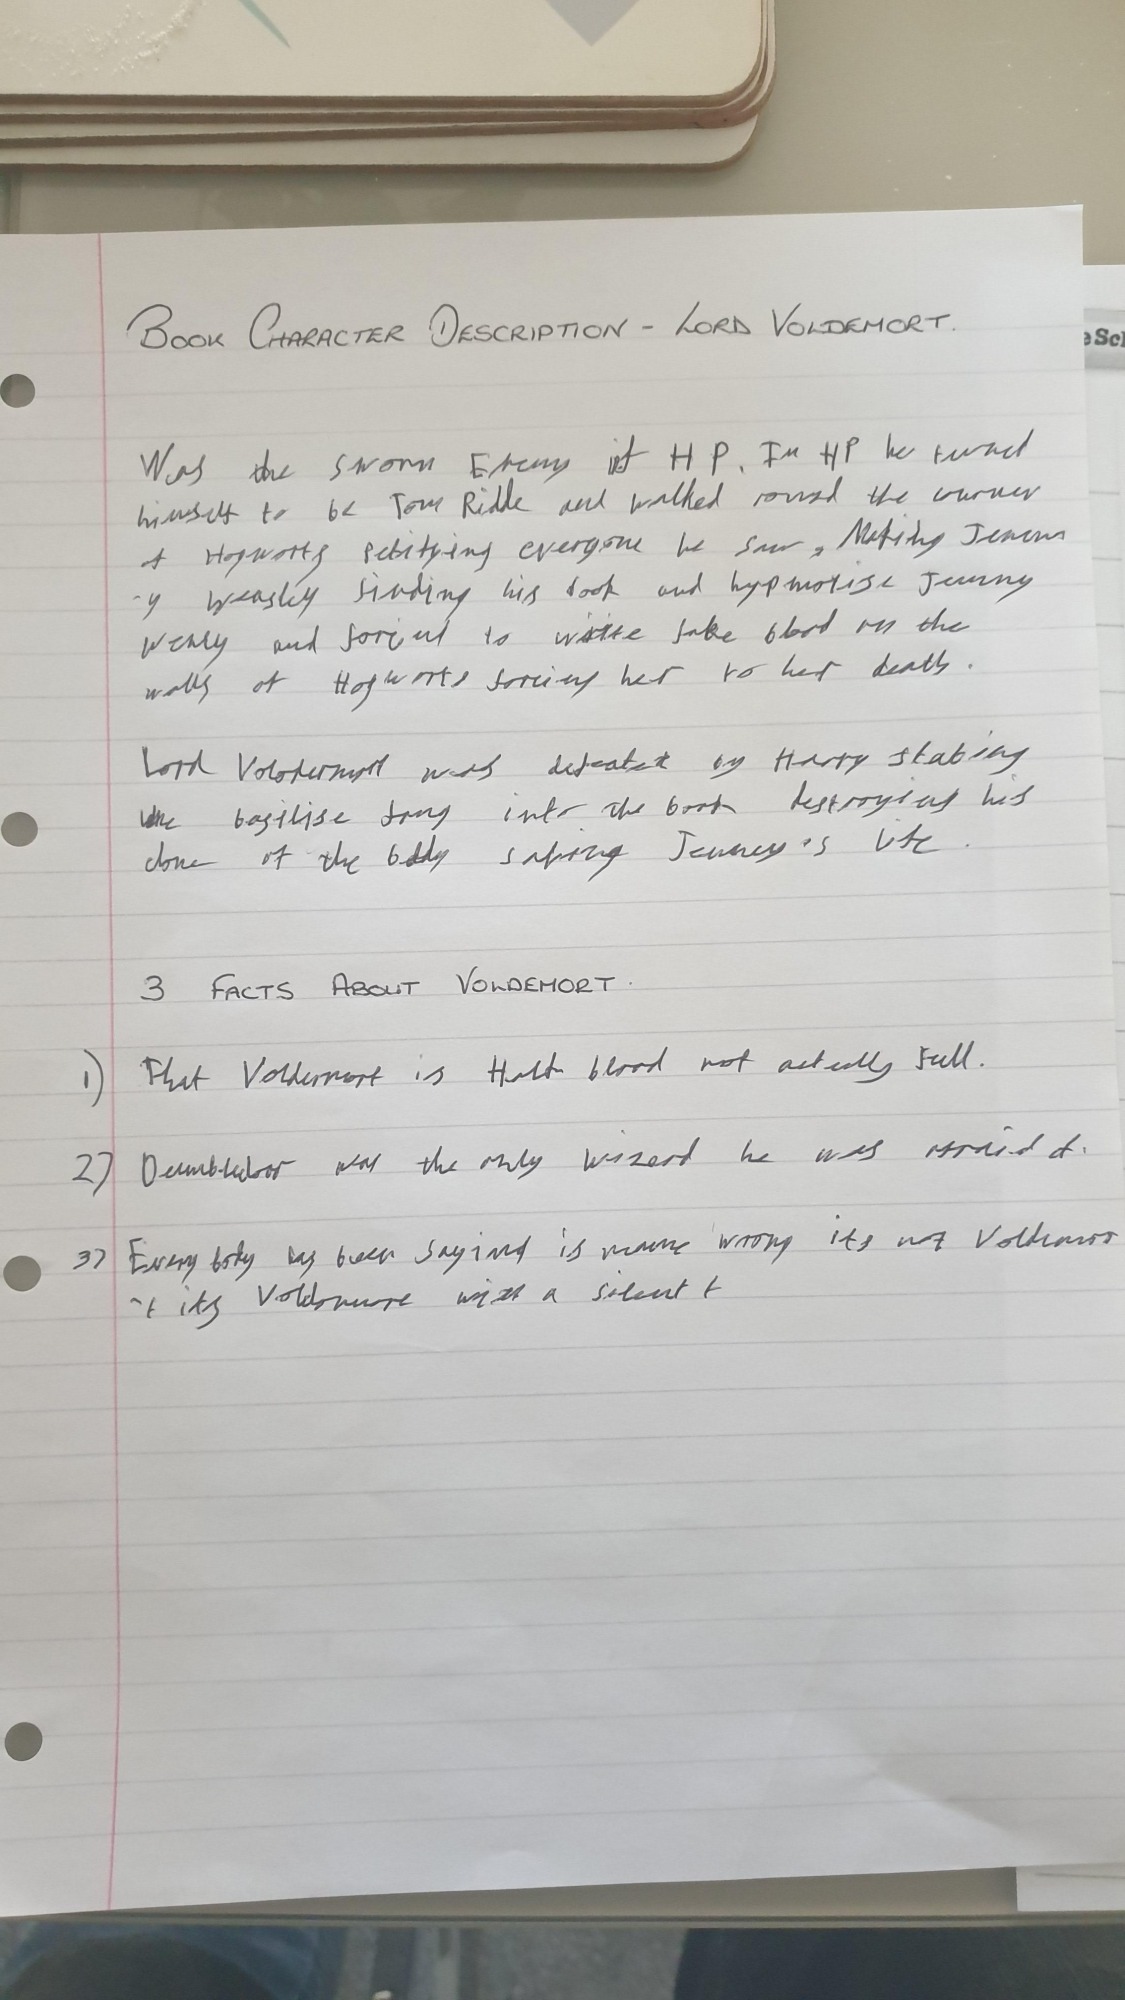 BOOK CHARACTER DESCRIPTION - LORD VOLDEMORT.
e Scl
Was the sworn Enemy of HP. In HP he turned
himself to be Tom Ridde and walked round the
of Hogworts petitfying everyone he saw, Making Jenn
-y weasley finding his book and hypmotise Jenny
wesly and forced to write fake blood on the
walls of Hogworts forcing her to her death.
Lord Voldermort was defeated by Harry stabing
the basilise fang into the book destroying his
clone of the body saving Jenney's life.
3 FACTS ABOUT VOLDEMORT.
1) That Voldermort is Half blood not actually full.
2) Dumbledoor was the only wizard he was afraid of.
3) Every body has been saying is name wrong its not Voldemor
-t its Voldemore with a silent t